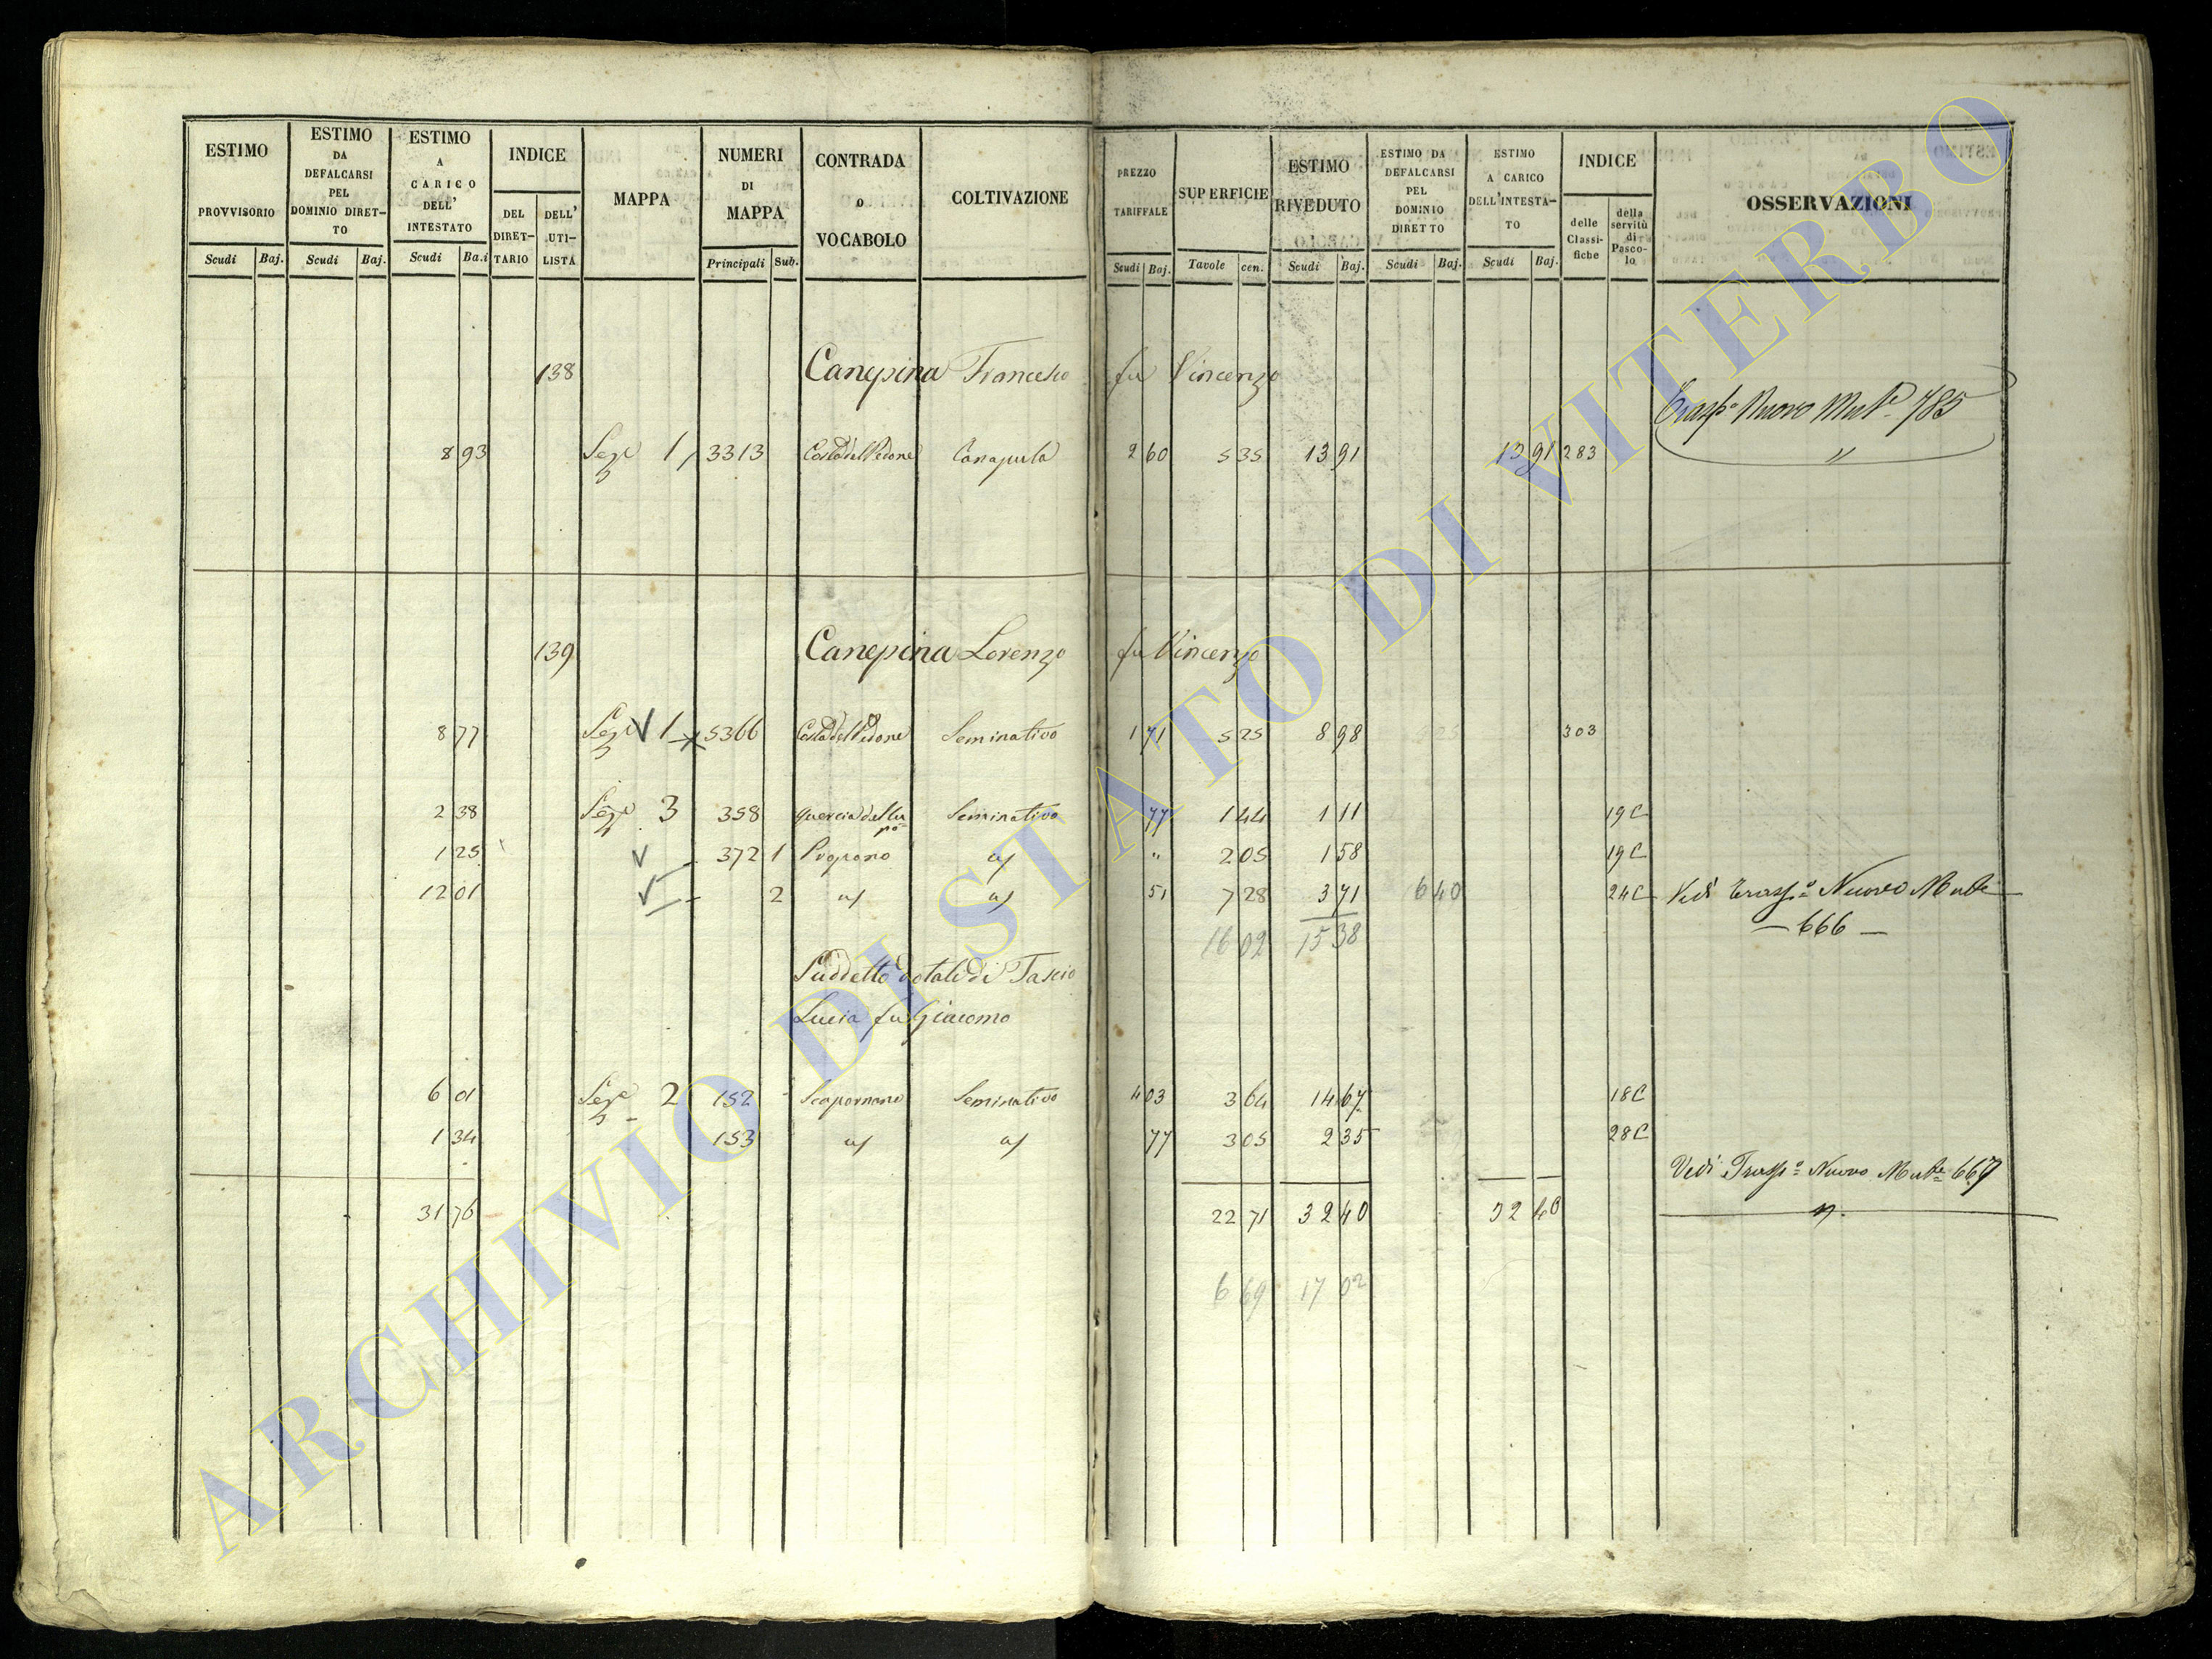 ESTIMO PROVVISORIO Scudi Baj.
ESTIMO DA DEFALCARSI PEL DOMINIO DIRET-TO Scudi Baj.
ESTIMO A CARICO DELL' INTESTATO Scudi Ba.i
INDICE DEL DIRET-TARIO DELL' UTI-LISTA
MAPPA
NUMERI DI MAPPA Principali Sub.
CONTRADA O VOCABOLO
COLTIVAZIONE
PREZZO TARIFFALE Scudi Baj.
SUPERFICIE Tavole cen.
ESTIMO RIVEDUTO Scudi Baj.
ESTIMO DA DEFALCARSI PEL DOMINIO DIRETTO Scudi Baj.
ESTIMO A CARICO DELL'INTESTA-TO Scudi Baj.
INDICE delle Classi-fiche della servitù di Pasco-lo
OSSERVAZIONI
138 Canepina Francesco fu Vincenzo
Trasp.o Nuovo Mut.e 785
8 93 Seze 1 3313 Costa del Pedone Canapula 2 60 5 35 13 91 13 91 283 "
139 Canepina Lorenzo fu Vincenzo
8 77 Seze V 1 5366 Costa del Pedone Seminativo 1 71 5 25 8 98 303
2 38 Seze 3 358 Quercia del Lu-po Seminativo 77 1 44 1 11 19C
1 25 V 372 1 Propano a/ " 2 05 1 58 19C
12 01 V 2 a/ a/ 51 7 28 3 71 6 40 24C Vedi Trasp.o Nuovo Mut.e
— 666 —
16 02 15 38
Suddetto dotali di Fascio
Lucia fu Giacomo
6 01 Seze 2 152 Scapornano Seminativo 4 03 3 64 14 67 18C
1 34 153 a/ a/ 77 3 05 2 35 28C
Vedi Trasp.o Nuovo Mut.e 667
31 76 22 71 32 40 32 40
6 69 17 02
ARCHIVIO DI STATO DI VITERBO